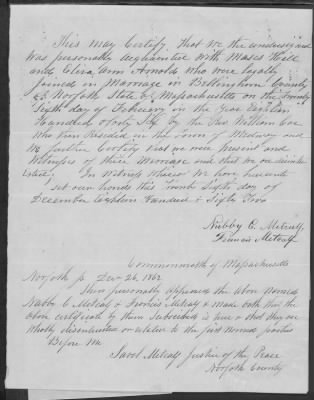 This may Certify, that We the undersigned
was personaly acquainted with Moses Hill
and Eliza Ann Arnolds who were legaly
joined in Marriage in Bellingham County
of Norfolk State of Massachusetts on the Twenty
Sixth day of February in the year Eighteen
Hundred & forty Six by the Rev William Coe
who then Resided in the Town of Medway and
We further Certify that we were present and
Witnesses of their Marriage and that we are disinter
ested. In Witness Whereof We have hereunto
set our hands this Twenty Sixth day of
December Eighteen Hundred & Sixty Two
Nabby C. Metcalf
Francis Metcalf
Commonwealth of Massachusetts
Norfolk ss Dec 26, 1862
then personaly appeared the above Named
Nabby C Metcalf & Francis Metcalf & made oath that the
above certificate by them subscribed is true & that they are
wholly disinterested or relative to the first named parties
Before Me
Savel Metcalf Justice of the Peace
Norfolk County